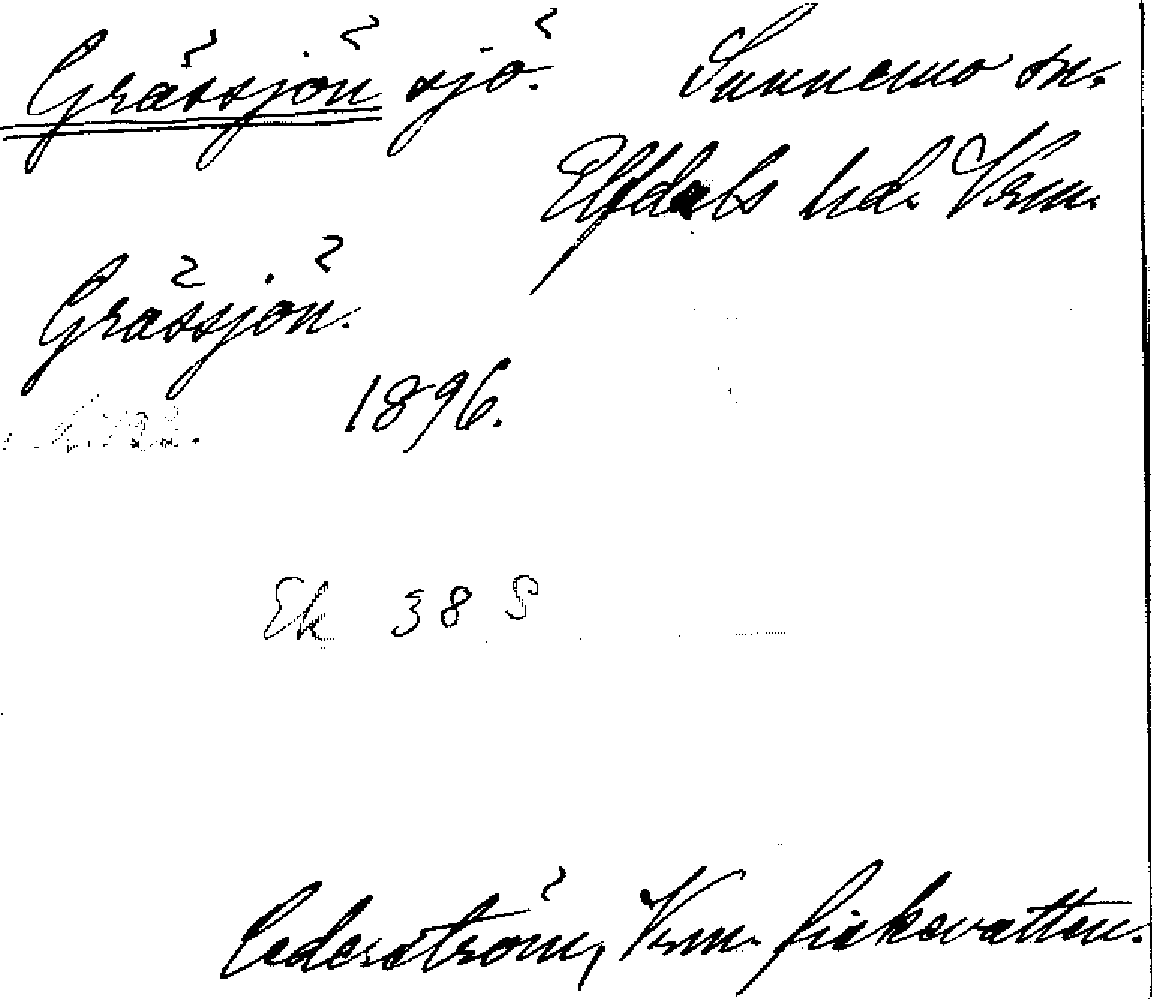 Grässjön sjö. Sunnemo sn.
Elfdals hd. Vrm.
Grässjön.
1896.
Ek 38 S
Cederström, Vrm. fiskevatten.